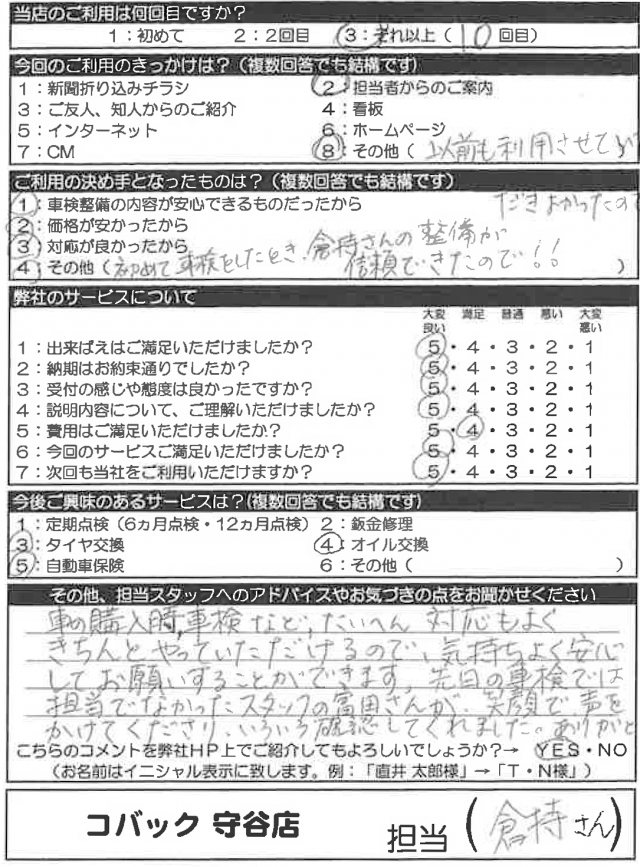 当店のご利用は何回目ですか？
1：初めて 2：2回目 3：それ以上（ 10 回目）
今回のご利用のきっかけは？（複数回答でも結構です）
1：新聞折り込みチラシ 2：担当者からのご案内
3：ご友人、知人からのご紹介 4：看板
5：インターネット 6：ホームページ
7：CM 8：その他（ 以前も利用させて
ご利用の決め手となったものは？（複数回答でも結構です）
1：車検整備の内容が安心できるものだったから だきよかったので
2：価格が安かったから
3：対応が良かったから
4：その他（初めて車検をしたとき、倉持さんの整備が
信頼できたので!! ）
弊社のサービスについて
大変良い 満足 普通 悪い 大変悪い
1：出来ばえはご満足いただけましたか？ 5・4・3・2・1
2：納期はお約束通りでしたか？ 5・4・3・2・1
3：受付の感じや態度は良かったですか？ 5・4・3・2・1
4：説明内容について、ご理解いただけましたか？ 5・4・3・2・1
5：費用はご満足いただけましたか？ 5・4・3・2・1
6：今回のサービスご満足いただけましたか？ 5・4・3・2・1
7：次回も当社をご利用いただけますか？ 5・4・3・2・1
今後ご興味のあるサービスは？(複数回答でも結構です)
1：定期点検（6ヵ月点検・12ヵ月点検） 2：鈑金修理
3：タイヤ交換 4：オイル交換
5：自動車保険 6：その他（ ）
その他、担当スタッフへのアドバイスやお気づきの点をお聞かせください
車の購入時,車検など、たいへん 対応もよく
きちんとやっていただけるので、気持ちよく安心
してお願いすることができます。先日の車検では
担当でなかったスタッフの富田さんが、笑顔で声を
かけてくださり、いろいろ確認してくれました。ありがと
こちらのコメントを弊社HP上でご紹介してもよろしいでしょうか？→ YES・NO
（お名前はイニシャル表示に致します。例：「直井 太郎様」→「T・N様」）
コバック 守谷店 担当（倉持さん）